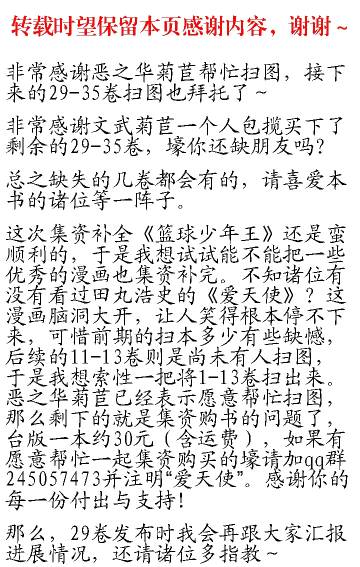 转载时望保留本页感谢内容，谢谢~
非常感谢恶之华菊苣帮忙扫图，接下
来的29-35卷扫图也拜托了~
非常感谢文武菊苣一个人包揽买下了
剩余的29-35卷，壕你还缺朋友吗？
总之缺失的几卷都会有的，请喜爱本
书的诸位等一阵子。
这次集资补全《篮球少年王》还是蛮
顺利的，于是我想试试能不能把一些
优秀的漫画也集资补完。不知诸位有
没有看过田丸浩史的《爱天使》？这
漫画脑洞大开，让人笑得根本停不下
来，可惜前期的扫本多少有些缺憾，
后续的11-13卷则是尚未有人扫图，
于是我想索性一把将1-13卷扫出来。
恶之华菊苣已经表示愿意帮忙扫图，
那么剩下的就是集资购书的问题了，
台版一本约30元（含运费），如果有
愿意帮忙一起集资购买的壕请加qq群
245057473并注明“爱天使”。感谢你的
每一份付出与支持！
那么，29卷发布时我会再跟大家汇报
进展情况，还请诸位多指教~